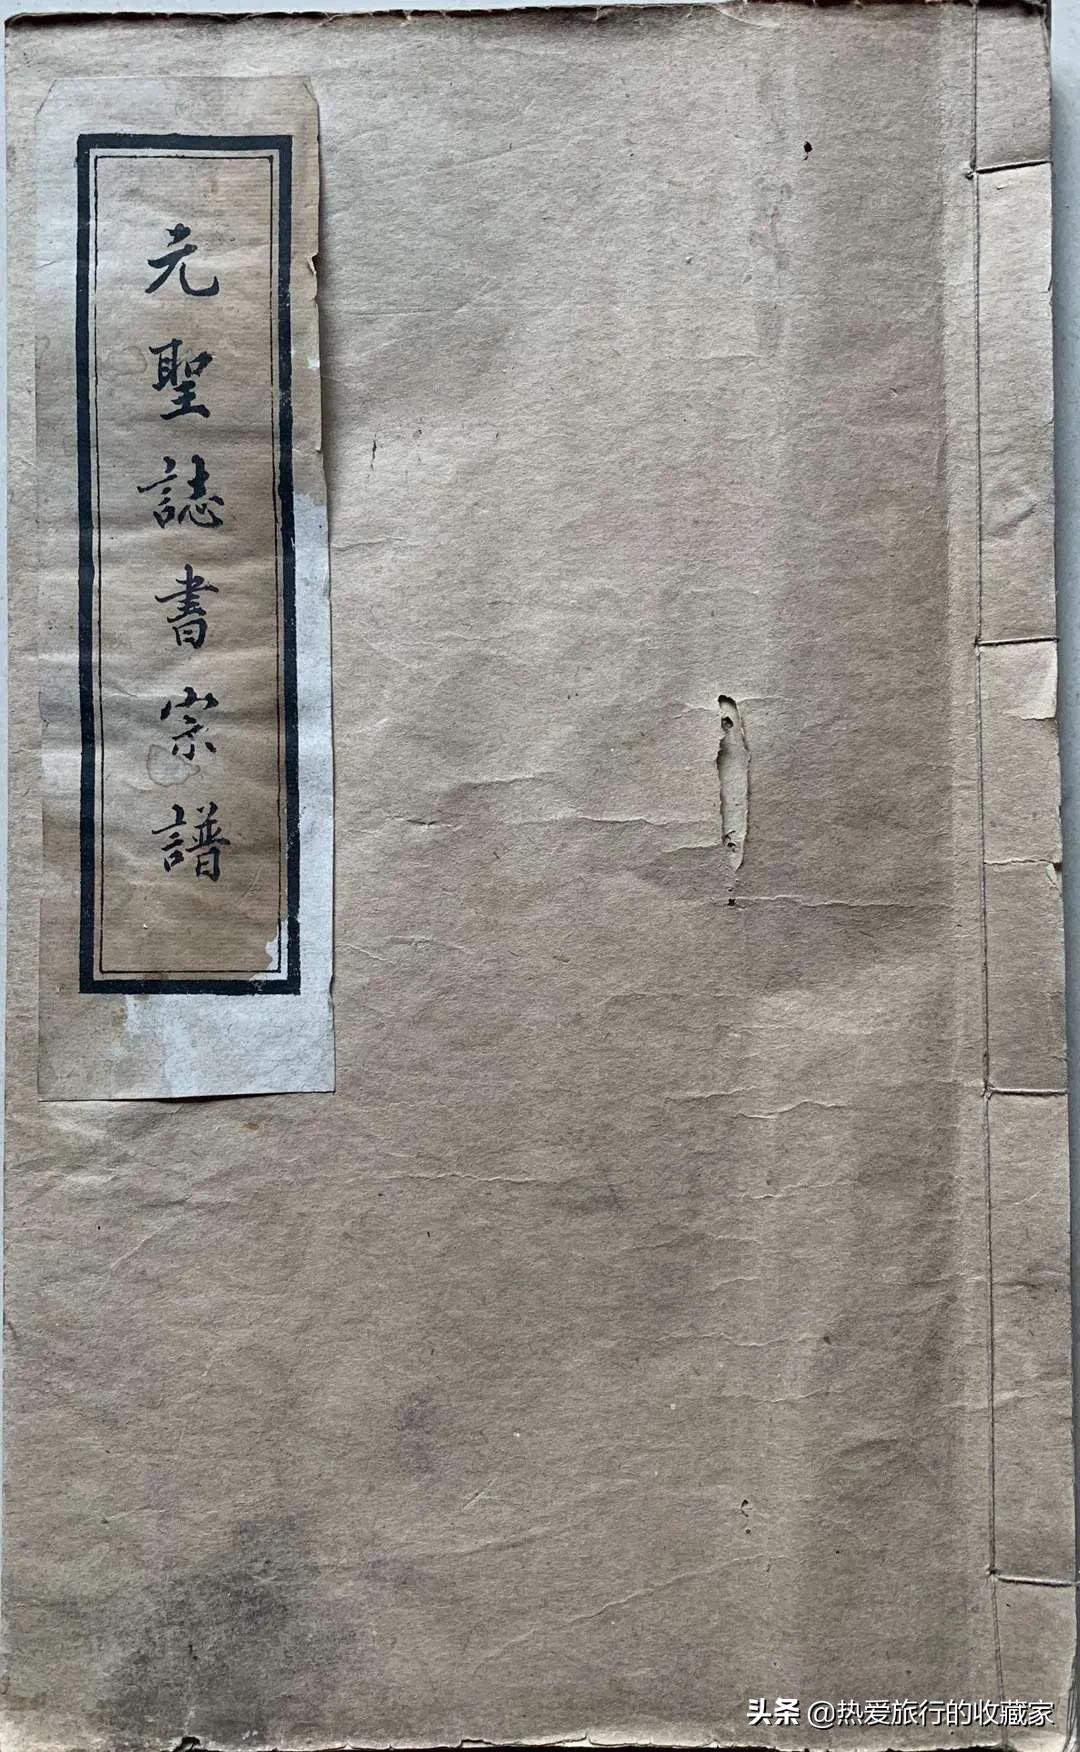 元聖誌書宗譜
头条 @热爱旅行的收藏家